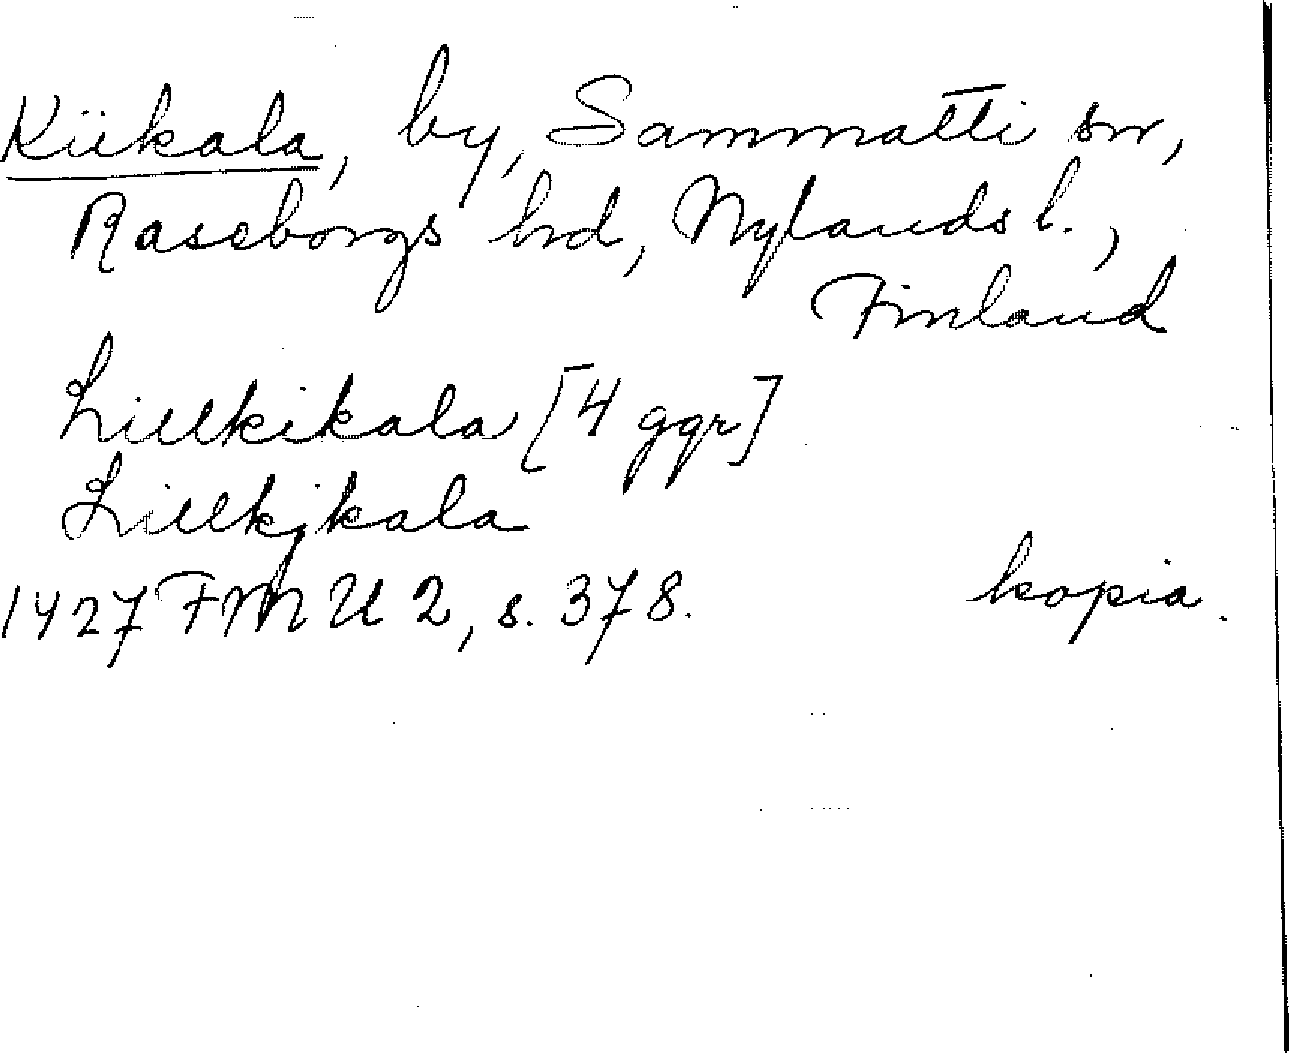 Kiikala, by, Sammatti sn,
Raseborgs hrd, Nylands l.,
Finland
Lillkikala [4 ggr]
Lillkjkala
1427 FMU 2, s. 378. kopia.